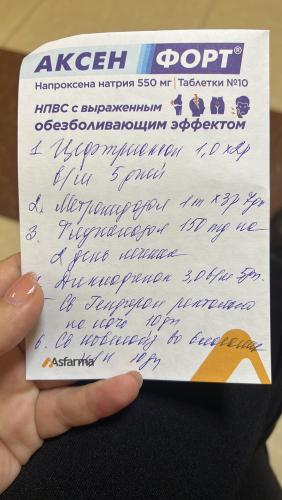 АКСЕН ФОРТ®
Напроксена натрия 550 мг | Таблетки №10
НПВС с выраженным
обезболивающим эффектом
1 Цефтриаксон 1,0 х 2р
в/м 5 дней
2. Метронидазол 1т х 3р 7дн
3. Флуконазол 150 mg на
2 день лечения
Диклофенак 3,0 в/м
Св Генферон ректально
на ночь 10дн
6. Св во влагалище
н/н 10дн
Asfarma